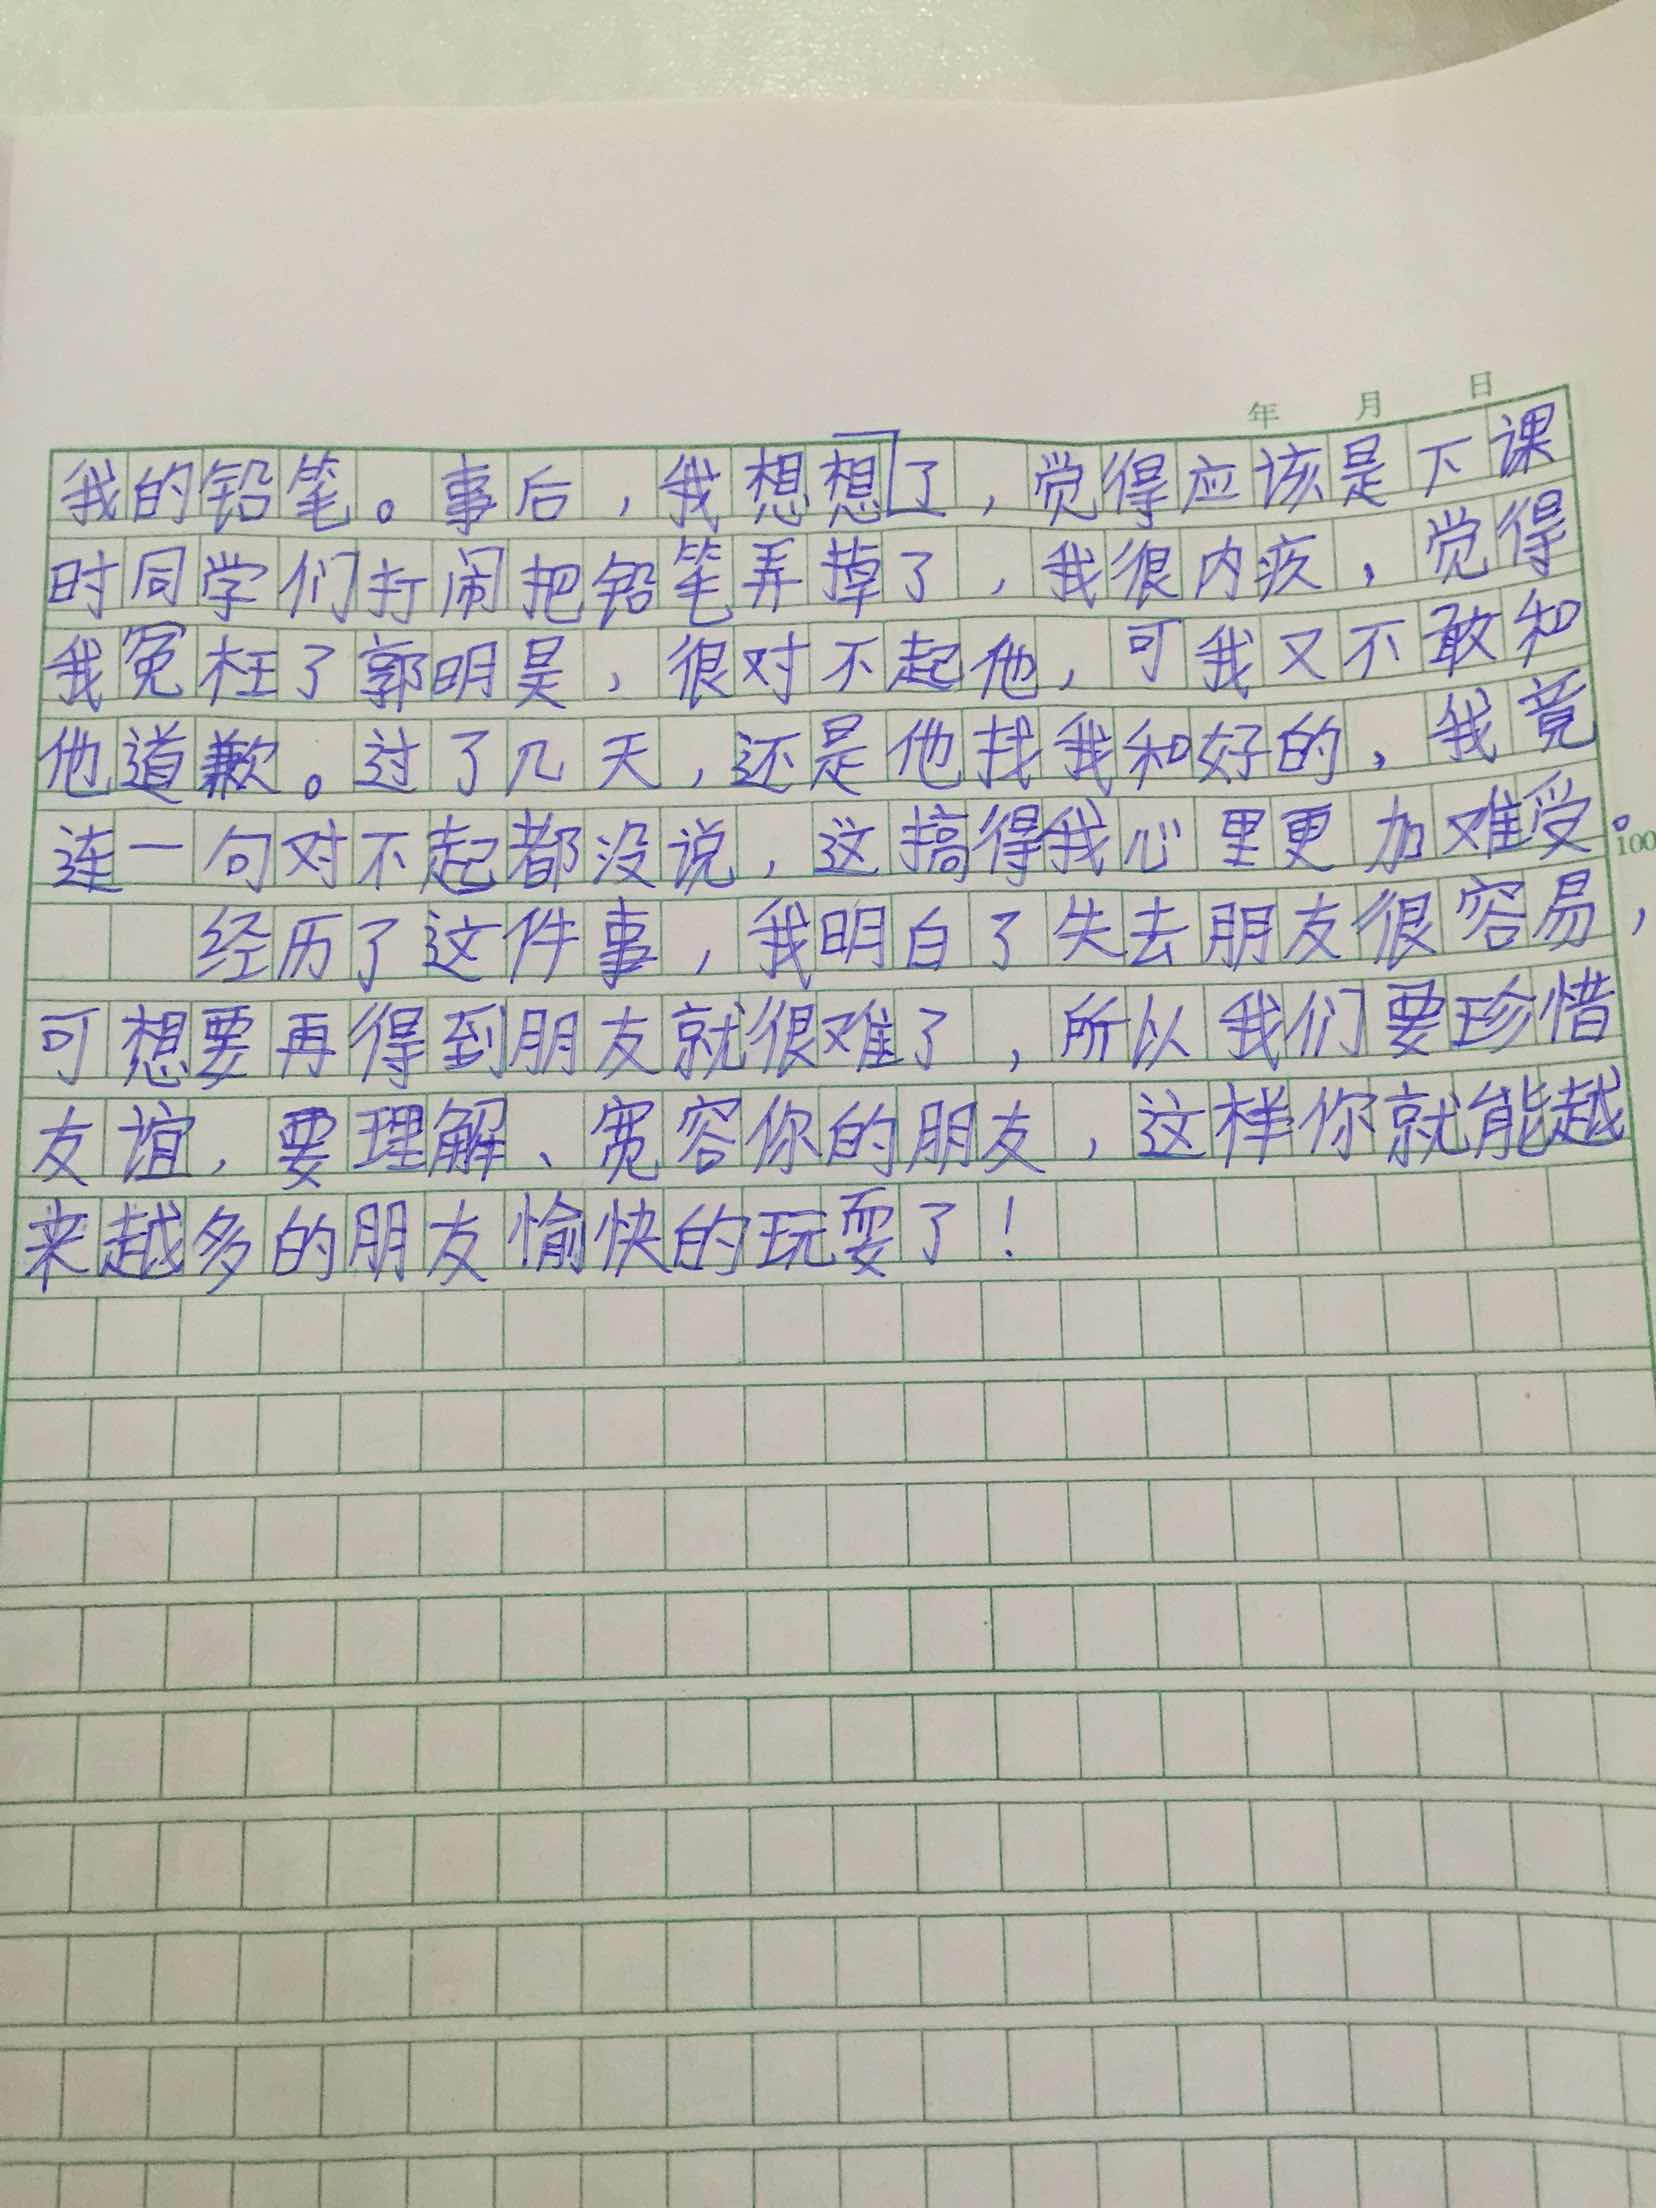 年 月 日
我的铅笔。事后，我想想了，觉得应该是下课
时同学们打闹把铅笔弄掉了，我很内疚，觉得
我冤枉了郭明昊，很对不起他，可我又不敢和
他道歉。过了几天，还是他找我和好的，我竟
连一句对不起都没说，这搞得我心里更加难受。
100
经历了这件事，我明白了失去朋友很容易，
可想要再得到朋友就很难了，所以我们要珍惜
友谊，要理解、宽容你的朋友，这样你就能越
来越多的朋友愉快的玩耍了！